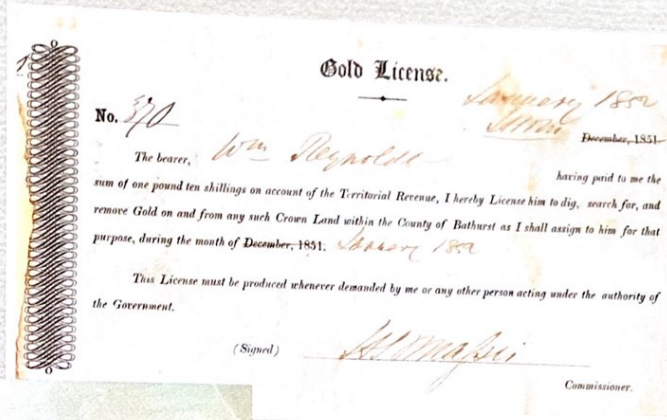 Gold License.
January 1852
No. 370
December, 1851.
The bearer, Wm Reynolds having paid to me the
sum of one pound ten shillings on account of the Territorial Revenue, I hereby License him to dig, search for, and
remove Gold on and from any such Crown Land within the County of Bathurst as I shall assign to him for that
purpose, during the month of December, 1851. January 1852
This License must be produced whenever demanded by me or any other person acting under the authority of
the Government.
(Signed)
Commissioner.